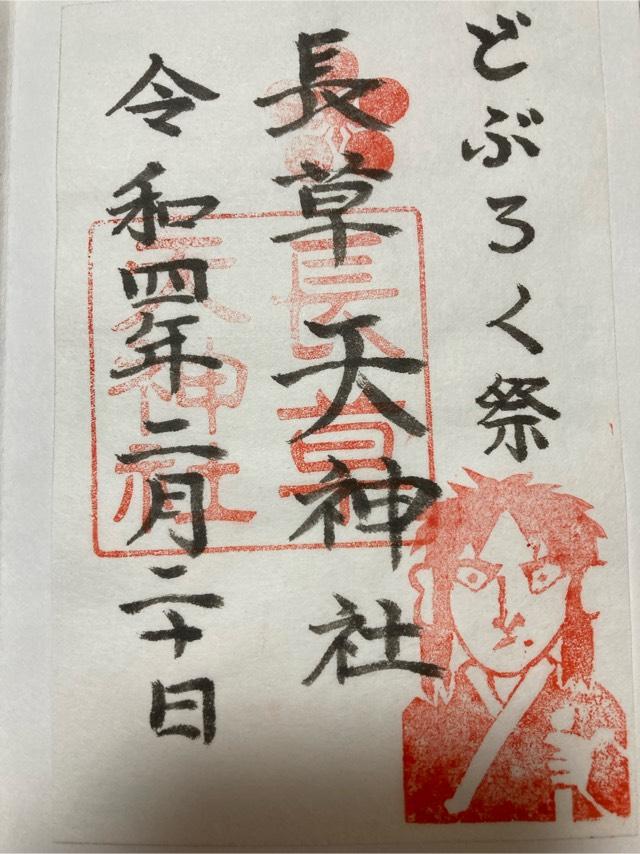 どぶろく祭
長草天神社
令和四年二月二十日
長草
天神社